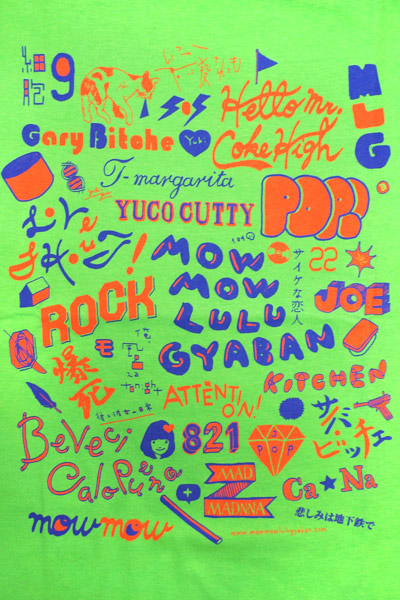 細胞
9
SOS
Hello Mr.
Coke High
MLG
Gary Bitche
Yuki
T-margarita
YUCO CUTTY
POP!!
Love
Shout!
MOW
MOW
LULU
GYABAN
サイケな恋人
22
JOE
ROCK
モ
爆死
ATTENTION!
KITCHEN
サバビッチェ
Beveci
Calopueno
821
J POP
MAD
MADNNA
Ca★Na
悲しみは地下鉄で
mowmow
www.mowmowlulugyaban.com